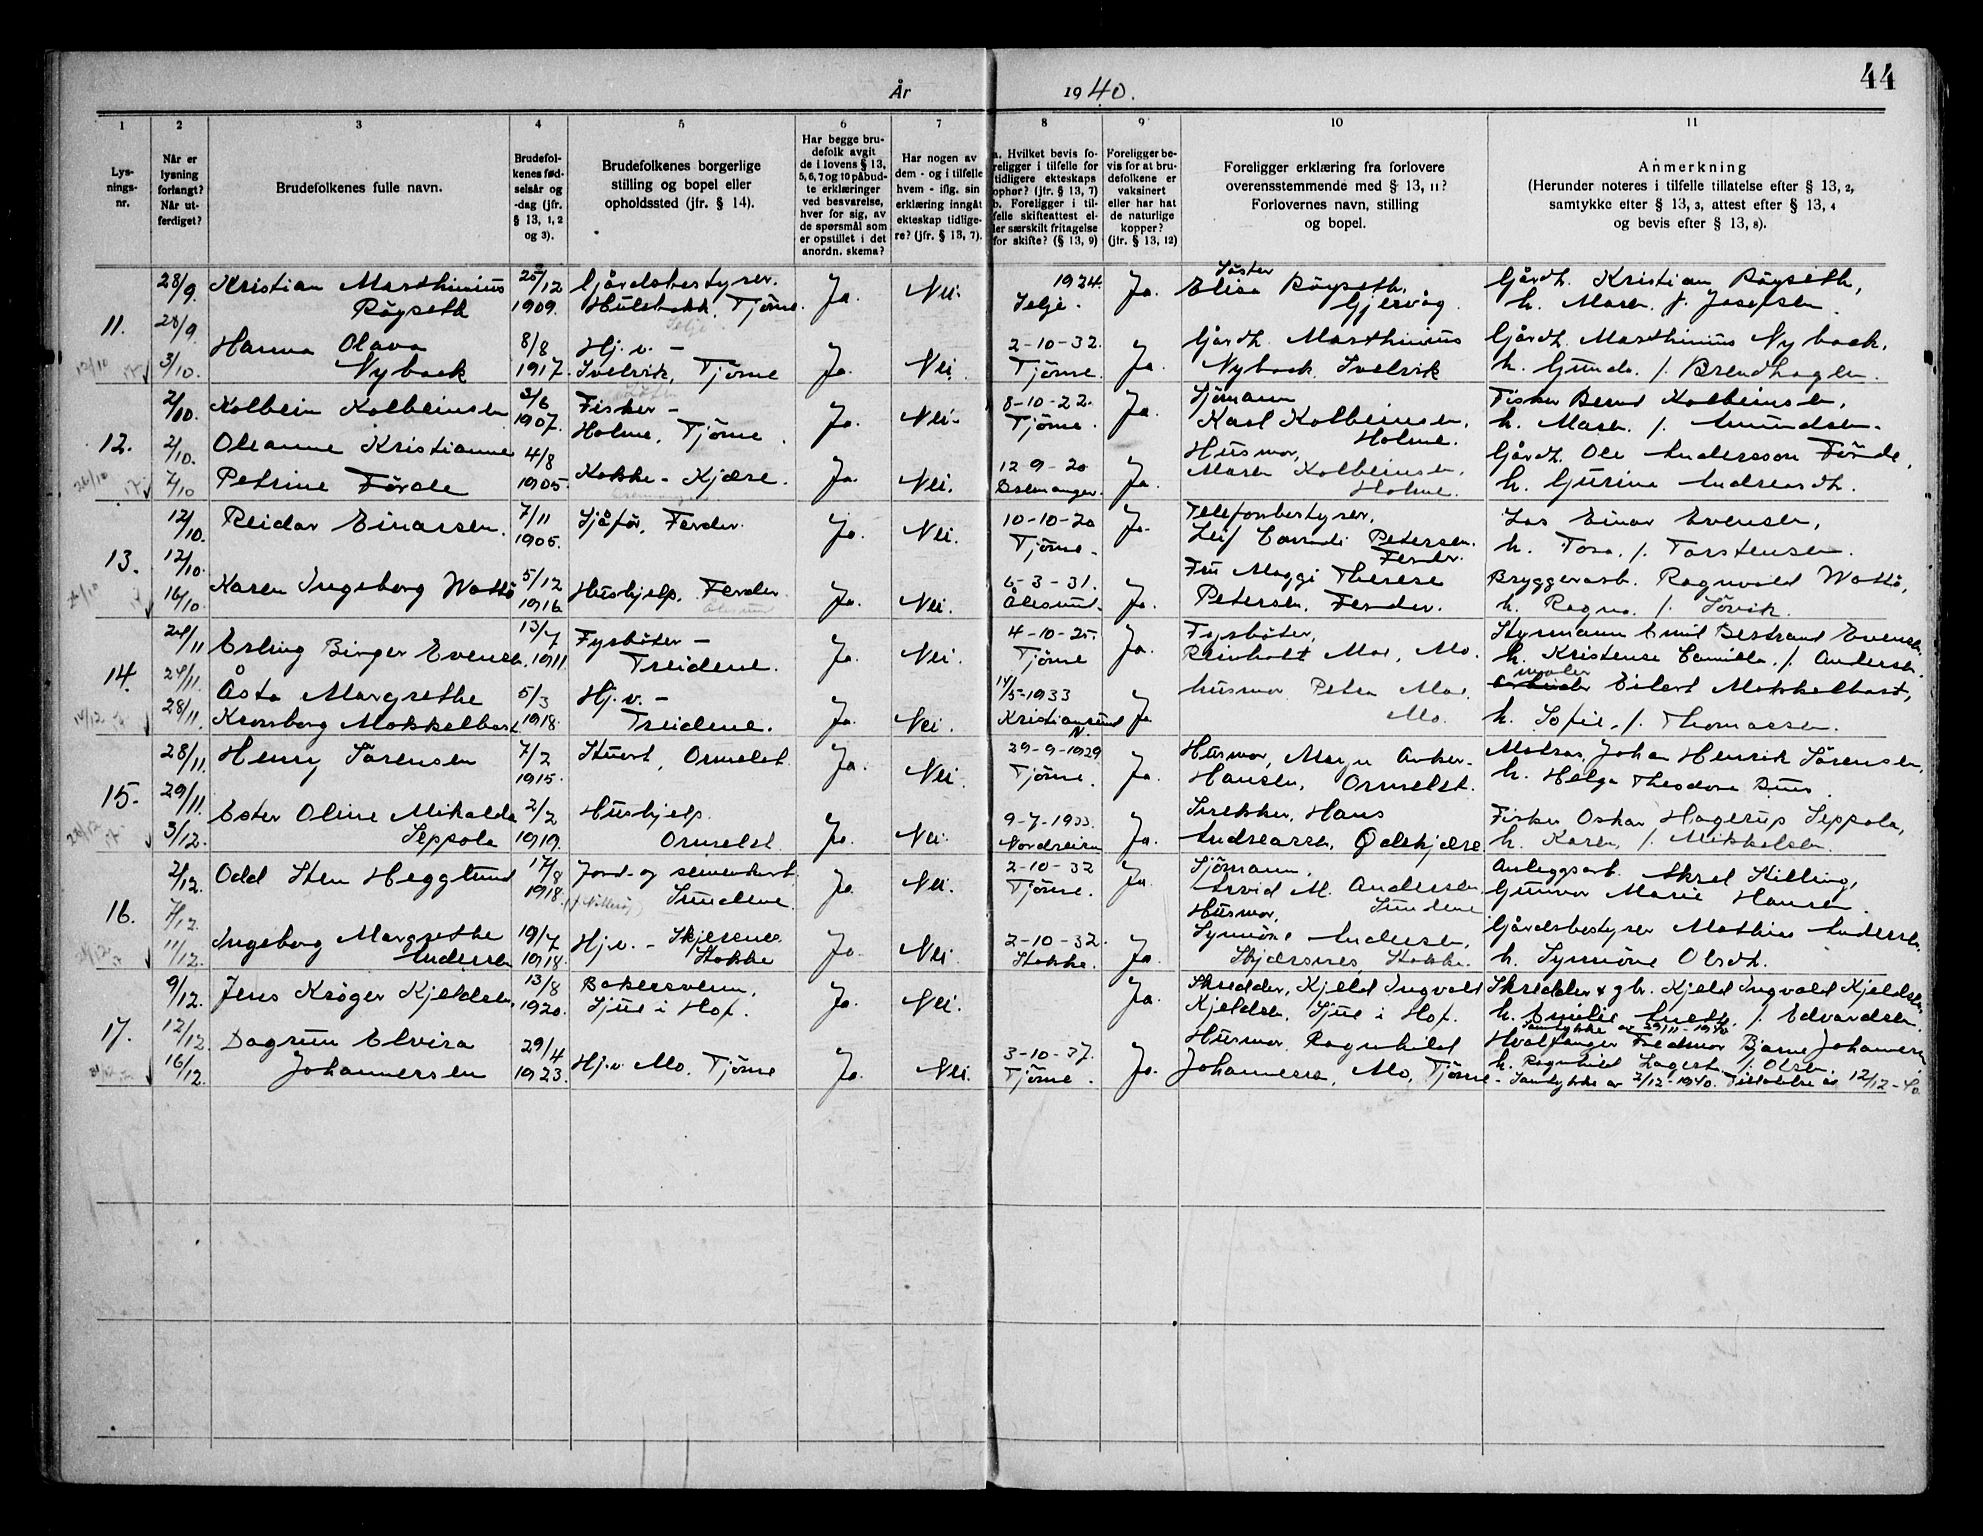 44
År 1940.
1 2 3 4 5 6 7 8 9 10 11
Lys-
nings-
nr.
Når er
lysning
forlangt?
Når ut-
ferdiget?
Brudefolkenes fulle navn.
Brudefol-
kenes fød-
selsår og
-dag (jfr.
§ 13, 1, 2
og 3).
Brudefolkenes borgerlige
stilling og bopel eller
opholdssted (jfr. § 14).
Har begge bru-
defolk avgit
de i lovens § 13,
5, 6, 7 og 10 påbud-
te erklæringer
ved besvarelse,
hver for sig, av
de spørsmål som
er opstillet i det
anordn. skema?
Har nogen av
dem - og i tilfelle
hvem - iflg. sin
erklæring inngått
ekteskap tidlige-
re? (jfr. § 13, 7).
a. Hvilket bevis fo-
religger i tilfelle for
tidligere ekteskaps
ophør? (jfr. § 13, 7)
b. Foreligger i til-
felle skifteattest el-
ler særskilt fritagelse
for skifte? (§ 13, 9)
Foreligger be-
vis for at bru-
defolkene er
vaksinert
eller har hat
de naturlige
kopper?
(jfr. § 13, 12)
Foreligger erklæring fra forlovere
overensstemmende med § 13, 11?
Forlovernes navn, stilling
og bopel.
Anmerkning
(Herunder noteres i tilfelle tillatelse efter § 13, 2,
samtykke efter § 13, 3, attest efter § 13, 4
og bevis efter § 13, 8).
11.
28/9. Kristian Marthinius 25/12 Gårdsbestyrer. Ja. Nei. 1924. Ja. Søster Elise Røyseth, Gårdbr. Kristian Røyseth,
Røyseth 1909. Hulebakk, Tjøme. Selje. Gjervåg. h. Maren f. Josefsen
28/9. Hanna Olava 8/8 Hj.v. - Ja. Nei. 2-10-32. Ja. Gårdbr. Marthinius Gårdbr. Marthinius Nyback,
3/10. Nyback 1917. Svelvik, Tjøme Tjøme. Nyback Svelvik h. Gunda f. Brendhagen.
12.
2/10. Kolbein Kolbeinsen 3/6 Fisker - Ja. Nei. 8-10-22. Ja. Sjømann Fisker Bernt Kolbeinsen,
1907. Holme, Tjøme. Tjøme. Karl Kolbeinsen, Holme. h. Maren f. Amundsen.
2/10. Oleanne Kristianne 4/8 Kokke - Kjære. Ja. Nei. 12 9-20 Ja. Husmor, Gårdbr. Ole Andersson Førde,
7/10 Petrine Førde 1905. Bremanger. Maren Kolbeinsen, Holme. h. Gurine Andreasdtr.
13.
12/10. Reidar Einarsen. 7/11 Sjåfør, Ferder. Ja. Nei. 10-10-20 Ja. Telefonbestyrer, Los Einar Evensen,
1905. Tjøme. Leif Petersen. Ferder. h. Tora f. Torstensen.
12/10. Karen Ingeborg Wattø 5/12 Hushjelp. Ferder. Ja. Nei. 6-3-31. Ja. Fru Maggi Therese Bryggerarb. Ragnvald Wattø,
16/10. 1916 Ålesund Ålesund. Petersen, Ferder. h. Ragna f. Søvik.
14.
24/11 Erling Birger Evensen. 13/7 Fyrbøter - Ja. Nei. 4-10-25. Ja. Fyrbøter, Styrmann Emil Bertrand Evensen,
1911. Treidene. Tjøme Reinholt Moe, Mo. h. Kristense Camilla f. Andersen
24/11. Åsta Margrethe 5/3 Hj.v. - Ja. Nei. 14/5-1933 Ja husmor Petra Moe. maler Eilert Mokkelbost,
28/11. Kronborg Mokkelbost 1918. Treidene. Kristiansund N. Mo. h. Sofie f. Thomassen.
15.
28/11. Henry Sørensen 7/2 Stuert, Ormelet. Ja. Nei. 29-9-1929 Ja. Husmor, Matros Johan Henrik Sørensen,
1915. Tjøme. Hansen, Ormelet. h. Helga Theodora
29/11. Ester Oline Mikalda 2/2 Hushjelp. Ja. Nei. 9-7-1933. Ja. Snekker, Hans Fisker Oskar Hagerup Seppola,
3/12. Seppola 1919. Ormelet Nordreisa Andreassen, Ødekjære h. Karen f. Mikkelsen.
16.
2/12. Odd Sten Hegglund 17/8 Jord- og sementarb. Ja. Nei. 2-10-32 Ja. Sjømann, Anleggsarb. Aksel Stilling,
1918. Sundene. Tjøme. Arvid M. Andersen Sundene Gunvor Marie Hansen
7/12. Ingeborg Margrethe 19/7 Hj.v. - Skjærsnes Ja. Nei. 2-10-32. Ja. Husmor, Gårdsbestyrer Mathias Andersen
11/12. Andersen 1918. Stokke Stokke. Synnøve Andersen, Skjærsnes, Stokke. h. Synnøve Olsdtr.
17.
9/12. Jens Krøger Kjeldsen 13/8 Bakersvenn, Ja. Nei. Ja. Skredder, Kjeld Ingvald Skredder & gbr. Kjeld Ingvald Kjeldsen
1920. Sjue i Hof. Kjeldsen, Sjue i Hof. h. Emilie f. Edvardsen.
Samtykke av 29/11-1940.
12/12. Dagrun Elvira 29/4 Hj.v. Mo, Tjøme Ja. Nei. 3-10-37. Ja. Husmor Ragnhild Hvalfanger Fredmor Bjarne Johannessen
16/12. Johannessen 1923. Tjøme. Johannessen, Mo, Tjøme h. Ragnhild f. Olsen.
- Samtykke av 2/12-1940. Tillatelse av 12/12-40.